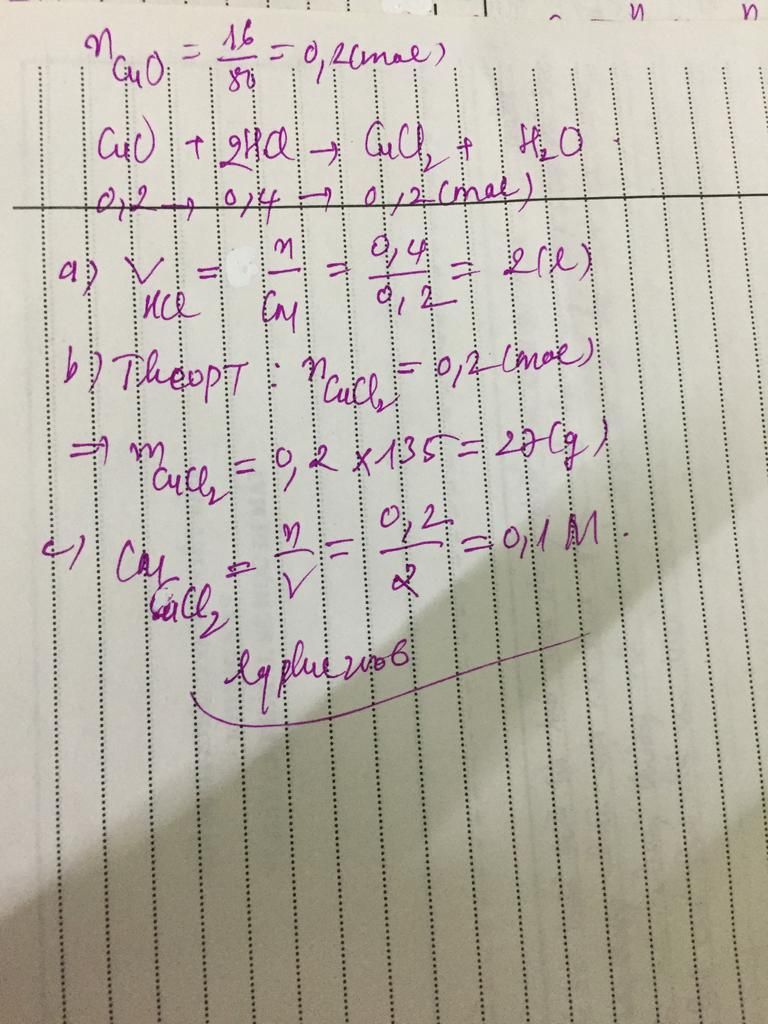 nCuO = 16/80 = 0,2(mol)
CuO + 2HCl → CuCl2 + H2O
0,2 → 0,4 → 0,2(mol)
a) VHCl = n/CM = 0,4/0,2 = 2(l)
b) Theo PT : nCuCl2 = 0,2(mol)
=> mCuCl2 = 0,2 x 135 = 27(g)
c) CM CuCl2 = n/V = 0,2/2 = 0,1M.